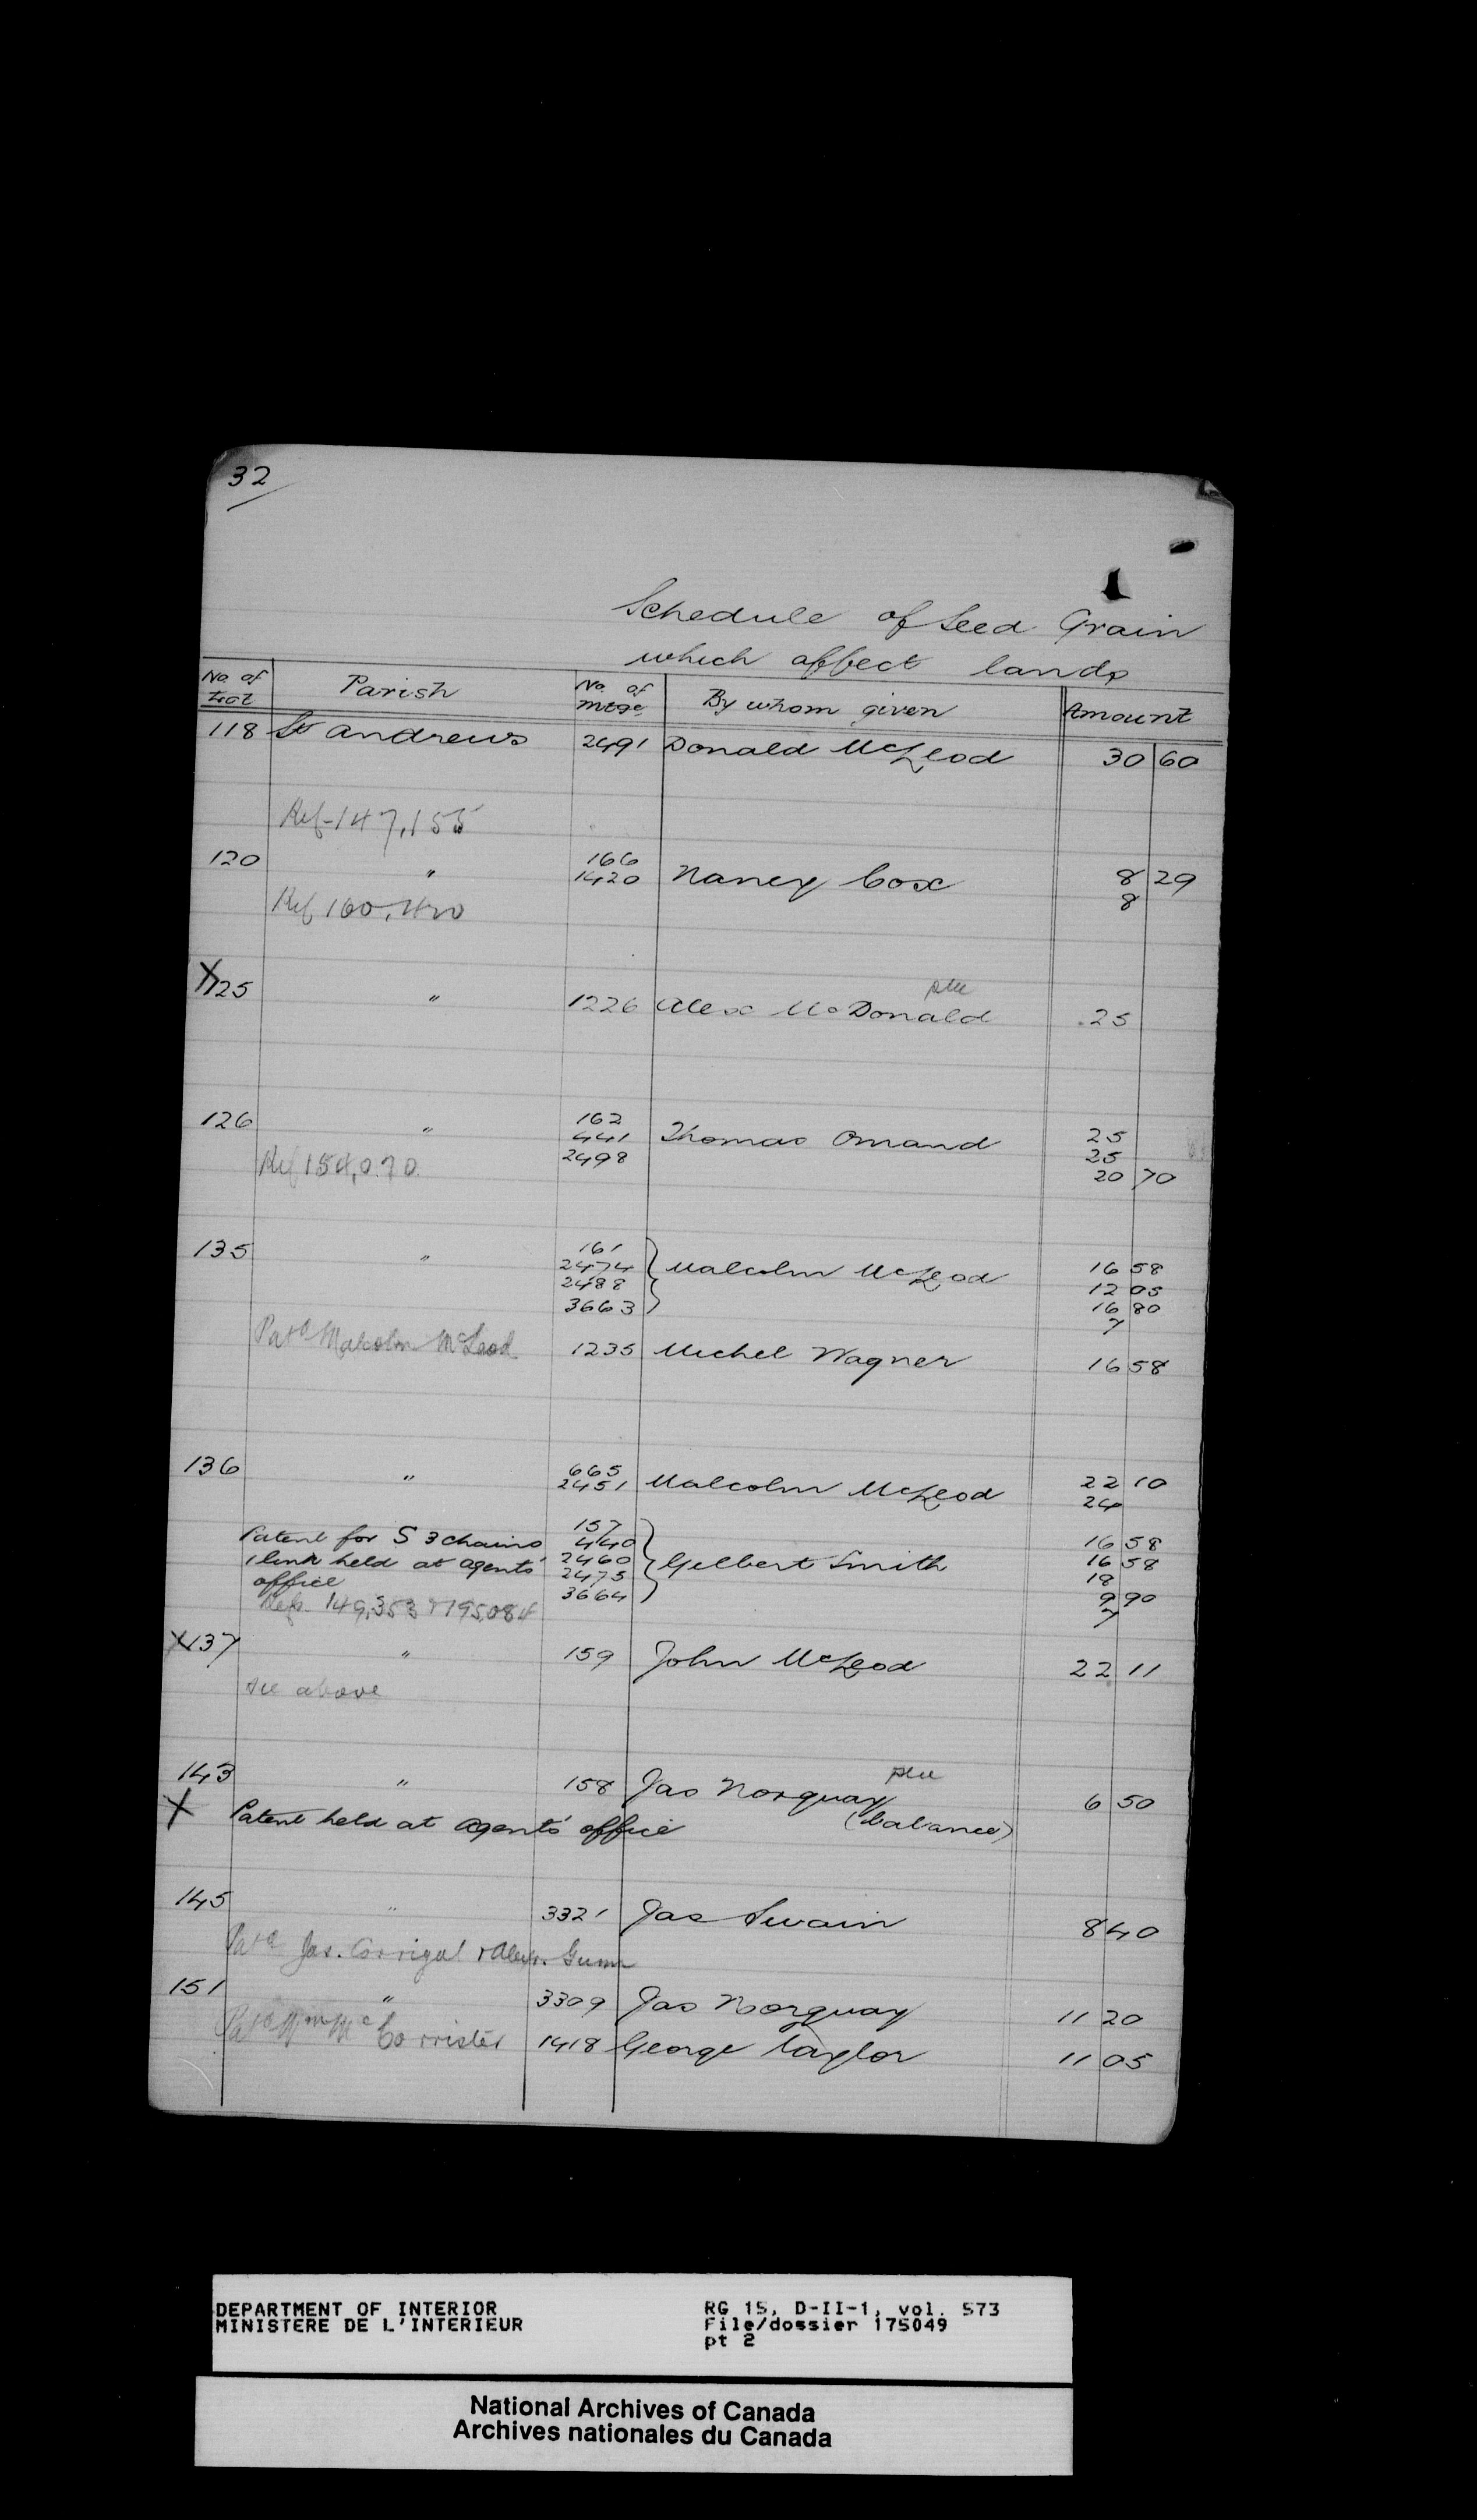 32
Schedule of Seed Grain
which affect lands
No. of Lot Parish No. of Mtge. By whom given Amount
118 St Andrews 2491 Donald McLeod 30 60
Ref-147,155
120 " 166 Nancy Cox 8 29
1420 8
Ref 160,420
X125 " 1226 Alex McDonald 25
126 " 162 Thomas Omand 25
441 25
2498 20 70
Ref 154,070
135 " 161 Malcolm McLeod 16 58
2474 12 05
2488 16 80
3663 7
Patd Malcolm McLeod 1235 Michel Wagner 16 58
136 " 665 Malcolm McLeod 22 10
2451 24
157 16 58
Patent for S 3 chains 440 16 58
1 link held at agents' 2460 Gilbert Smith 18
office 2475 9 90
Refs. 149,353 & 195,084 3664 7
X137 " 159 John McLeod 22 11
see above
143 " 158 Jas Norquay 6 50
X Patent held at agents' office (balance)
145 " 3321 Jas Swain 8 40
Patd Jas. Corrigal & Alex. Gunn
151 " 3309 Jas Norquay 11 20
Patd Wm McCorrister 1418 George Taylor 11 05
DEPARTMENT OF INTERIOR
MINISTERE DE L'INTERIEUR
RG 15, D-II-1, vol. 573
File/dossier 175049
pt 2
National Archives of Canada
Archives nationales du Canada